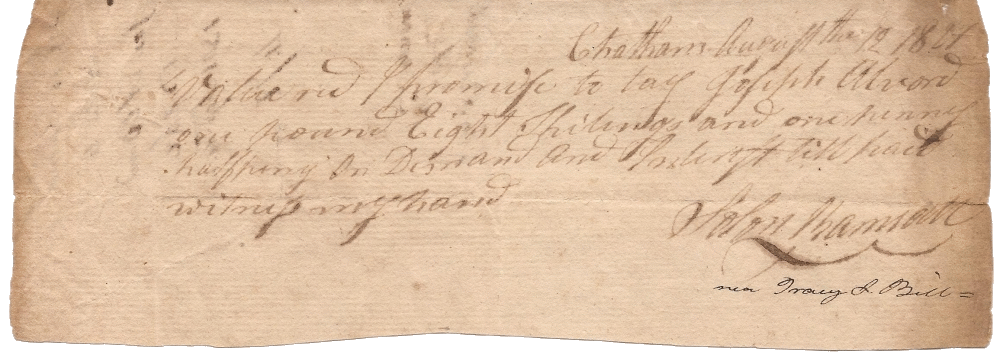 Chatham August the 12 18
Value red I promise to pay Joseph Alvord
one pound Eight Shilings and one penny
halfpeny On Demand and Intrest till paid
witness my hand
near Tracy S. Bill =